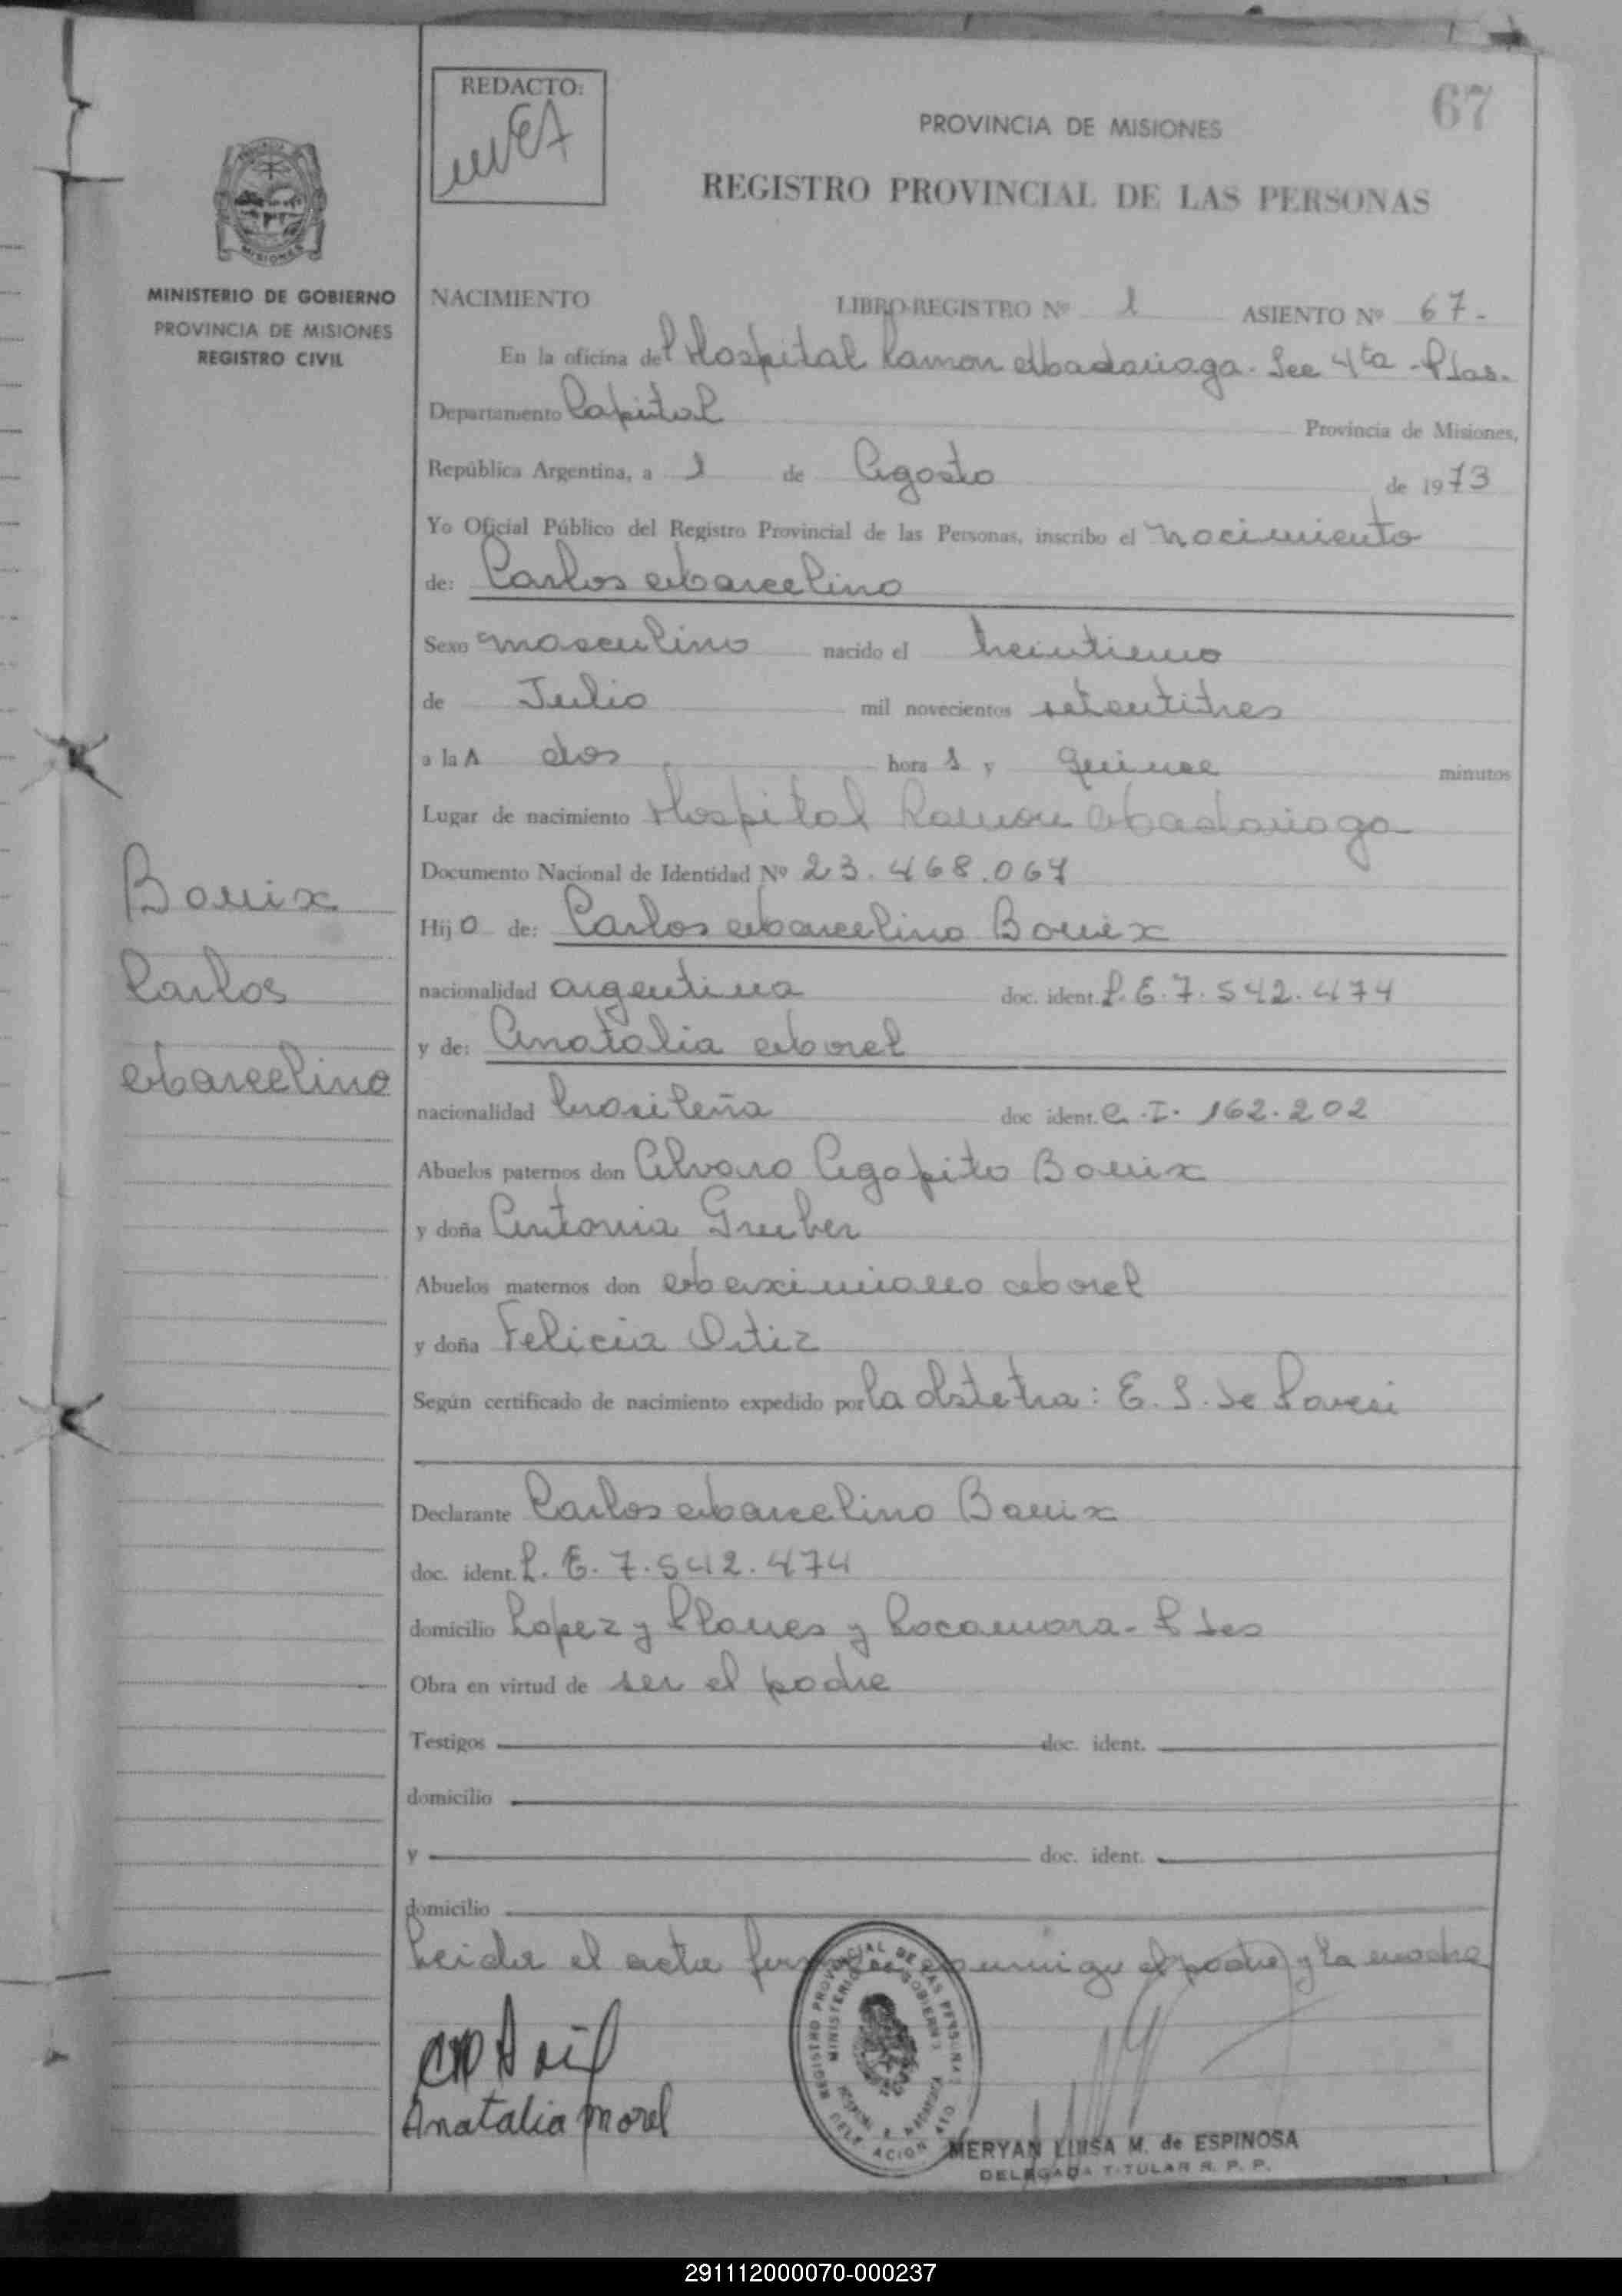 REDACTO:
67
PROVINCIA DE MISIONES
REGISTRO PROVINCIAL DE LAS PERSONAS
MISIONES
MINISTERIO DE GOBIERNO
PROVINCIA DE MISIONES
REGISTRO CIVIL
NACIMIENTO LIBRO-REGISTRO Nº 1 ASIENTO Nº 67.-
En la oficina del Hospital Ramon Madariaga. Sec 4ta - Pdas.
Departamento Capital Provincia de Misiones,
República Argentina, a 1 de Agosto de 1973
Yo Oficial Público del Registro Provincial de las Personas, inscribo el nacimiento
de: Carlos Marcelino
Sexo masculino nacido el veintiuno
de Julio mil novecientos setentitres
a la s dos hora s y quince minutos
Lugar de nacimiento Hospital Ramon Madariaga
Documento Nacional de Identidad Nº 23.468.067
Hij o de: Carlos Marcelino Bouix
nacionalidad argentina doc. ident. L.E. 7.542.474
y de: Anatalia Morel
nacionalidad brasileña doc ident. C.I. 162.202
Abuelos paternos don Alvaro Agapito Bouix
y doña Antonia Gruber
Abuelos maternos don Maximiano Morel
y doña Felicia Ortiz
Según certificado de nacimiento expedido por la obstetra: E. S. de
Declarante Carlos Marcelino Bouix
doc. ident. L.E. 7.542.474
domicilio Lopez y Planes y Rocamora - Pdas
Obra en virtud de ser el padre
Testigos doc. ident.
domicilio
y doc. ident.
domicilio
Leida el acta conmigo el padre y la madre
Bouix
Carlos
Marcelino
Anatalia Morel
REGISTRO PROVINCIAL DE LAS PERSONAS
MINISTERIO DE GOBIERNO
DELEGACION
MERYAN LUISA M. de ESPINOSA
DELEGADA TITULAR R. P. P.
291112000070-000237